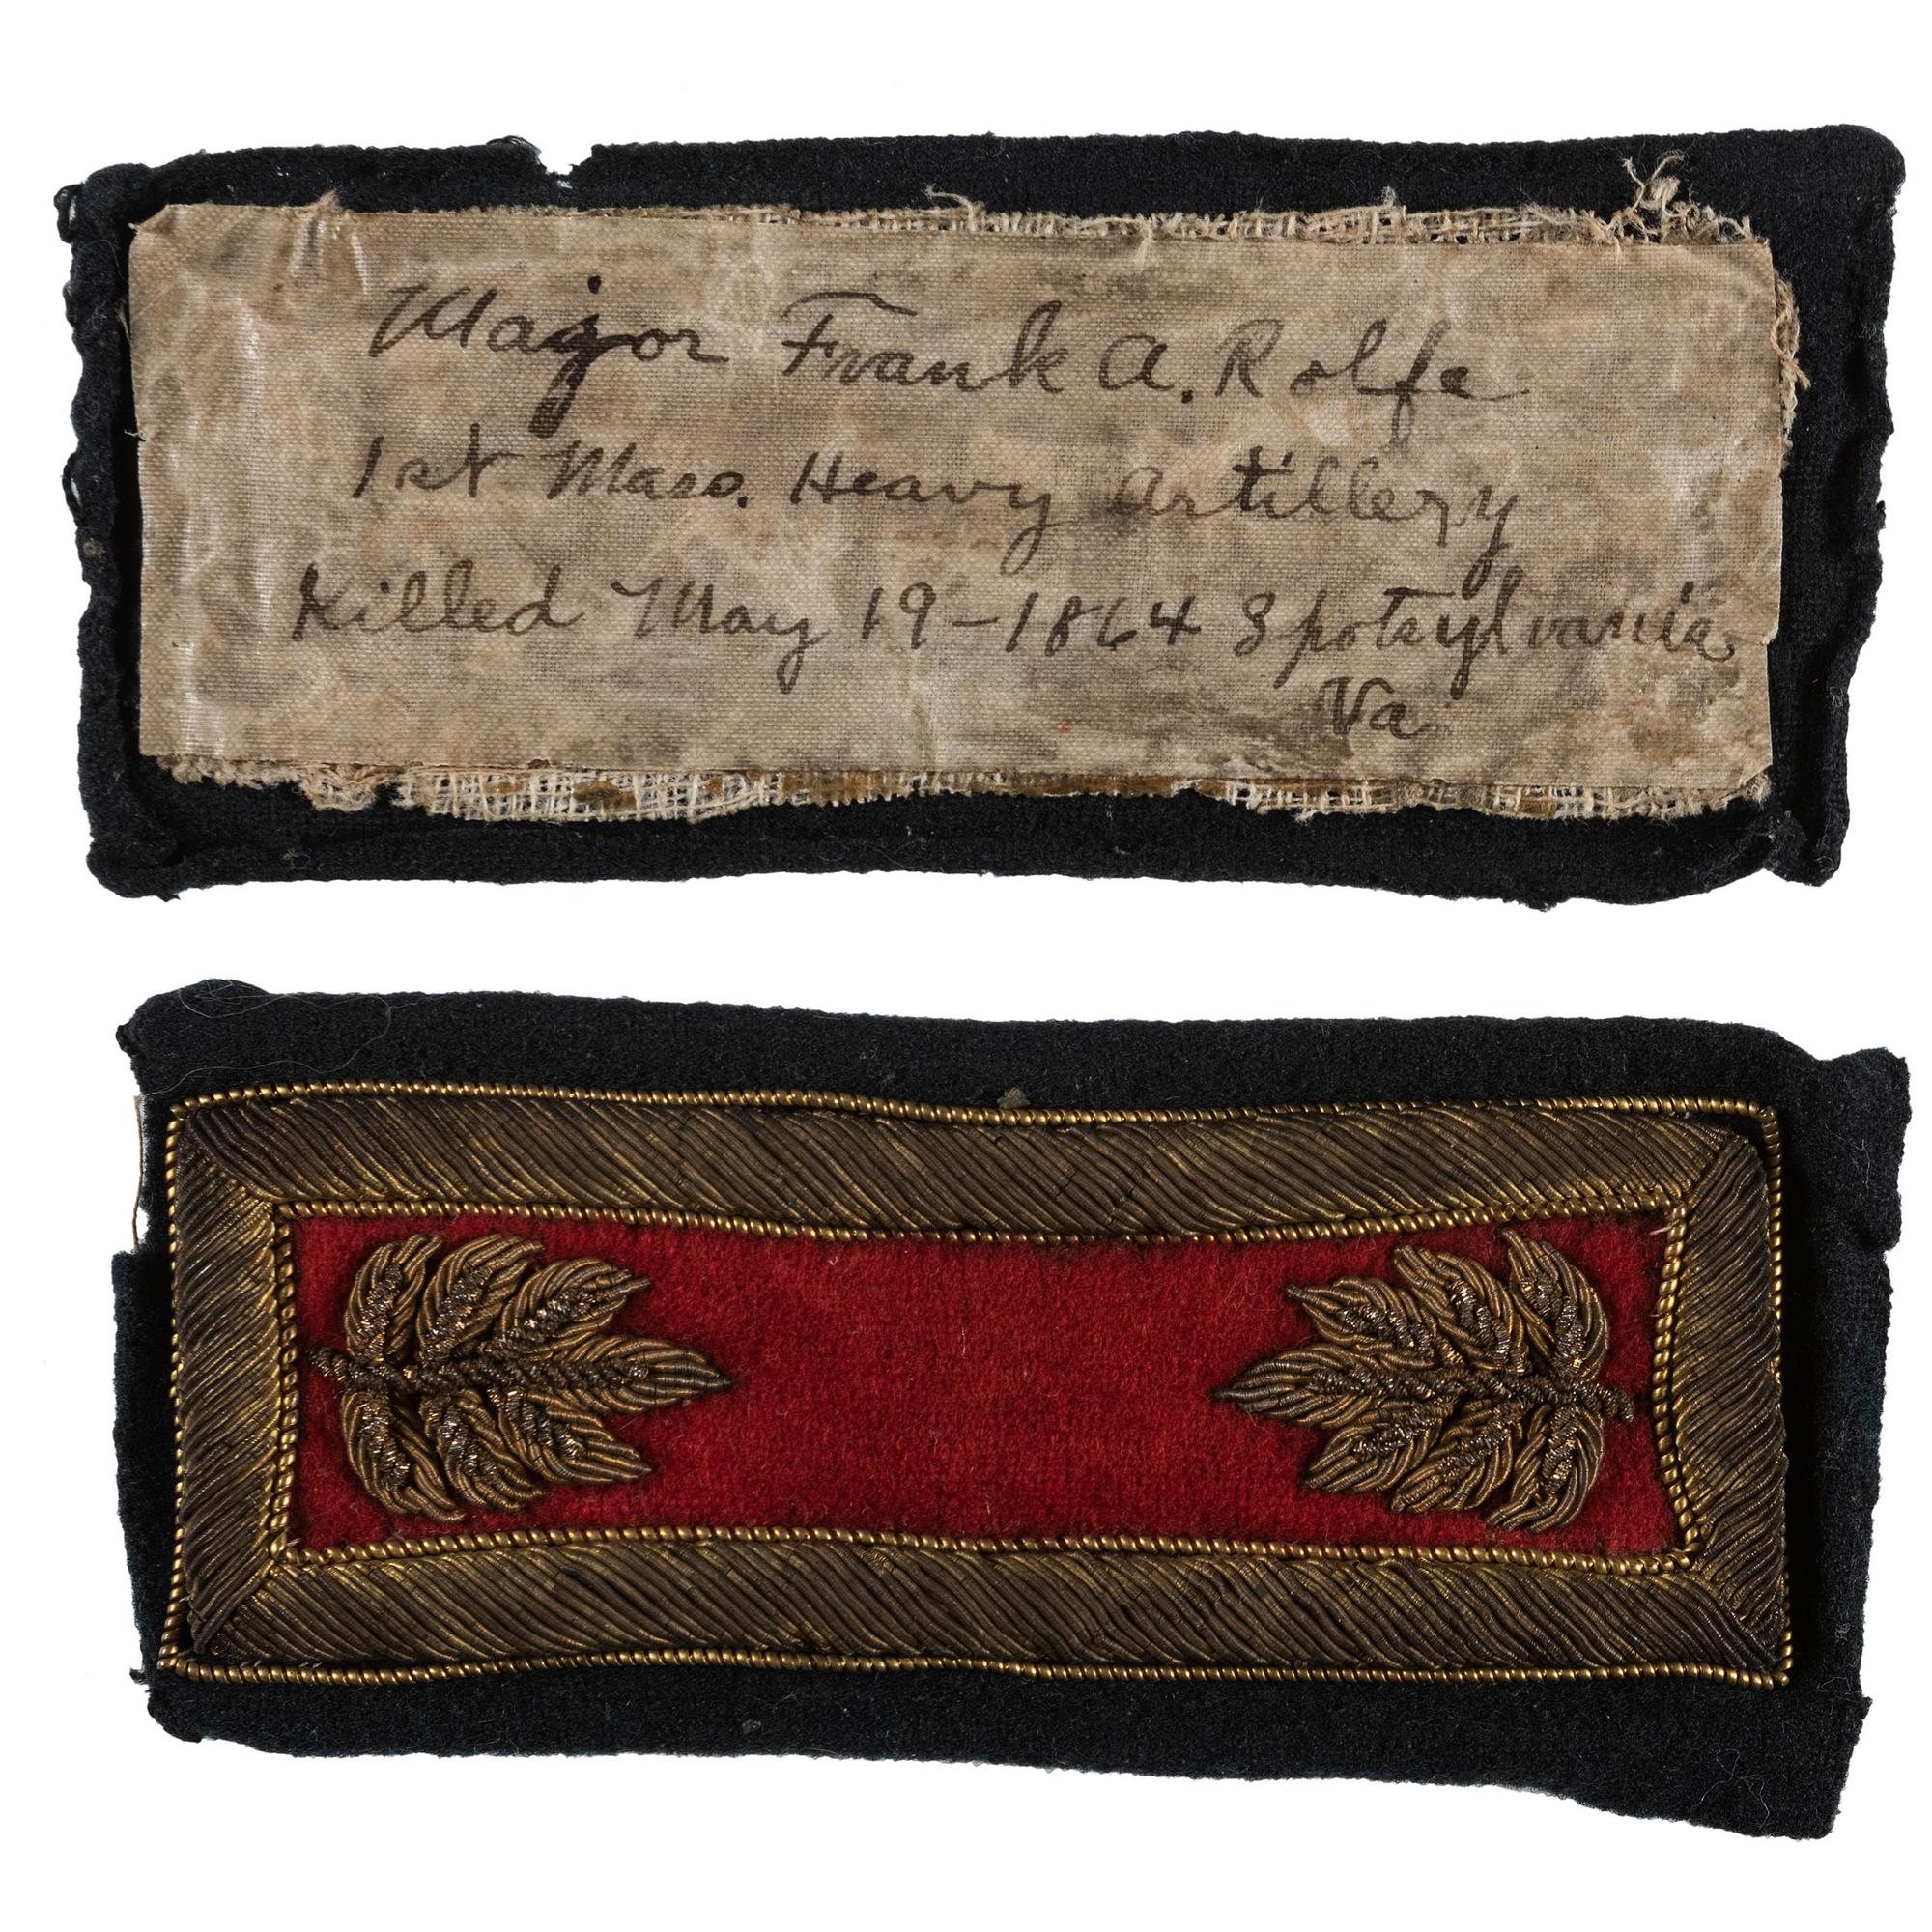 Major Frank A. Rolfe
1st Mass. Heavy Artillery
Killed May 19-1864 Spotsylvania
Va